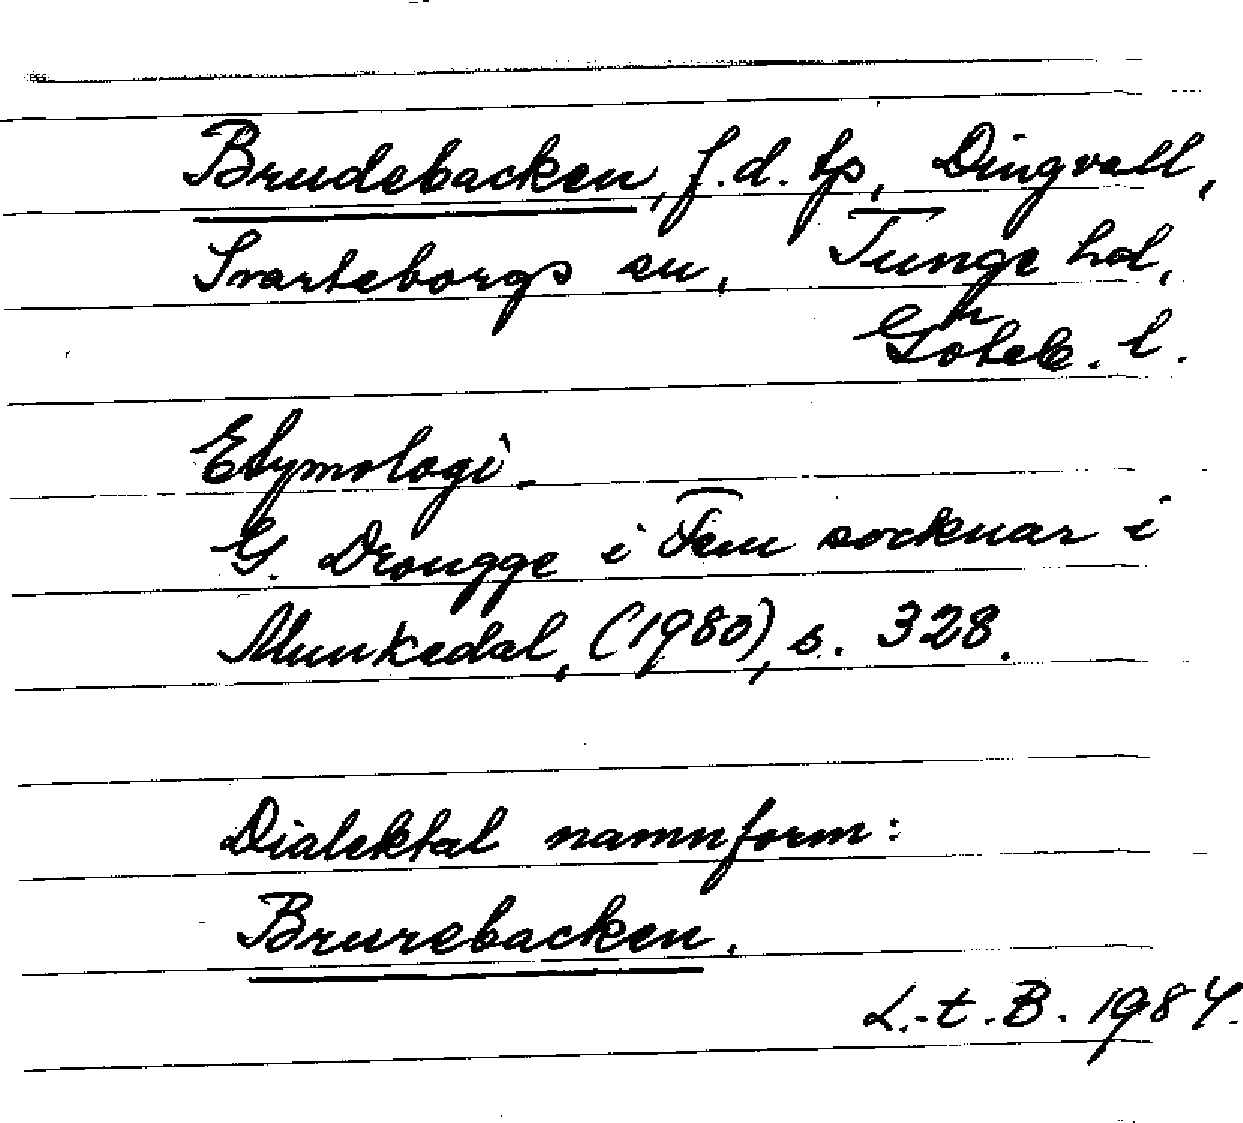 Brudebacken, f.d. tp, Dingvall,
Svarteborgs sn, Tunge hd,
Göteb. l.
Etymologi.
G. Drougge i Fem socknar i
Munkedal, (1980), s. 328.
Dialektal namnform:
Brurebacken.
L.-t. B. 1984.